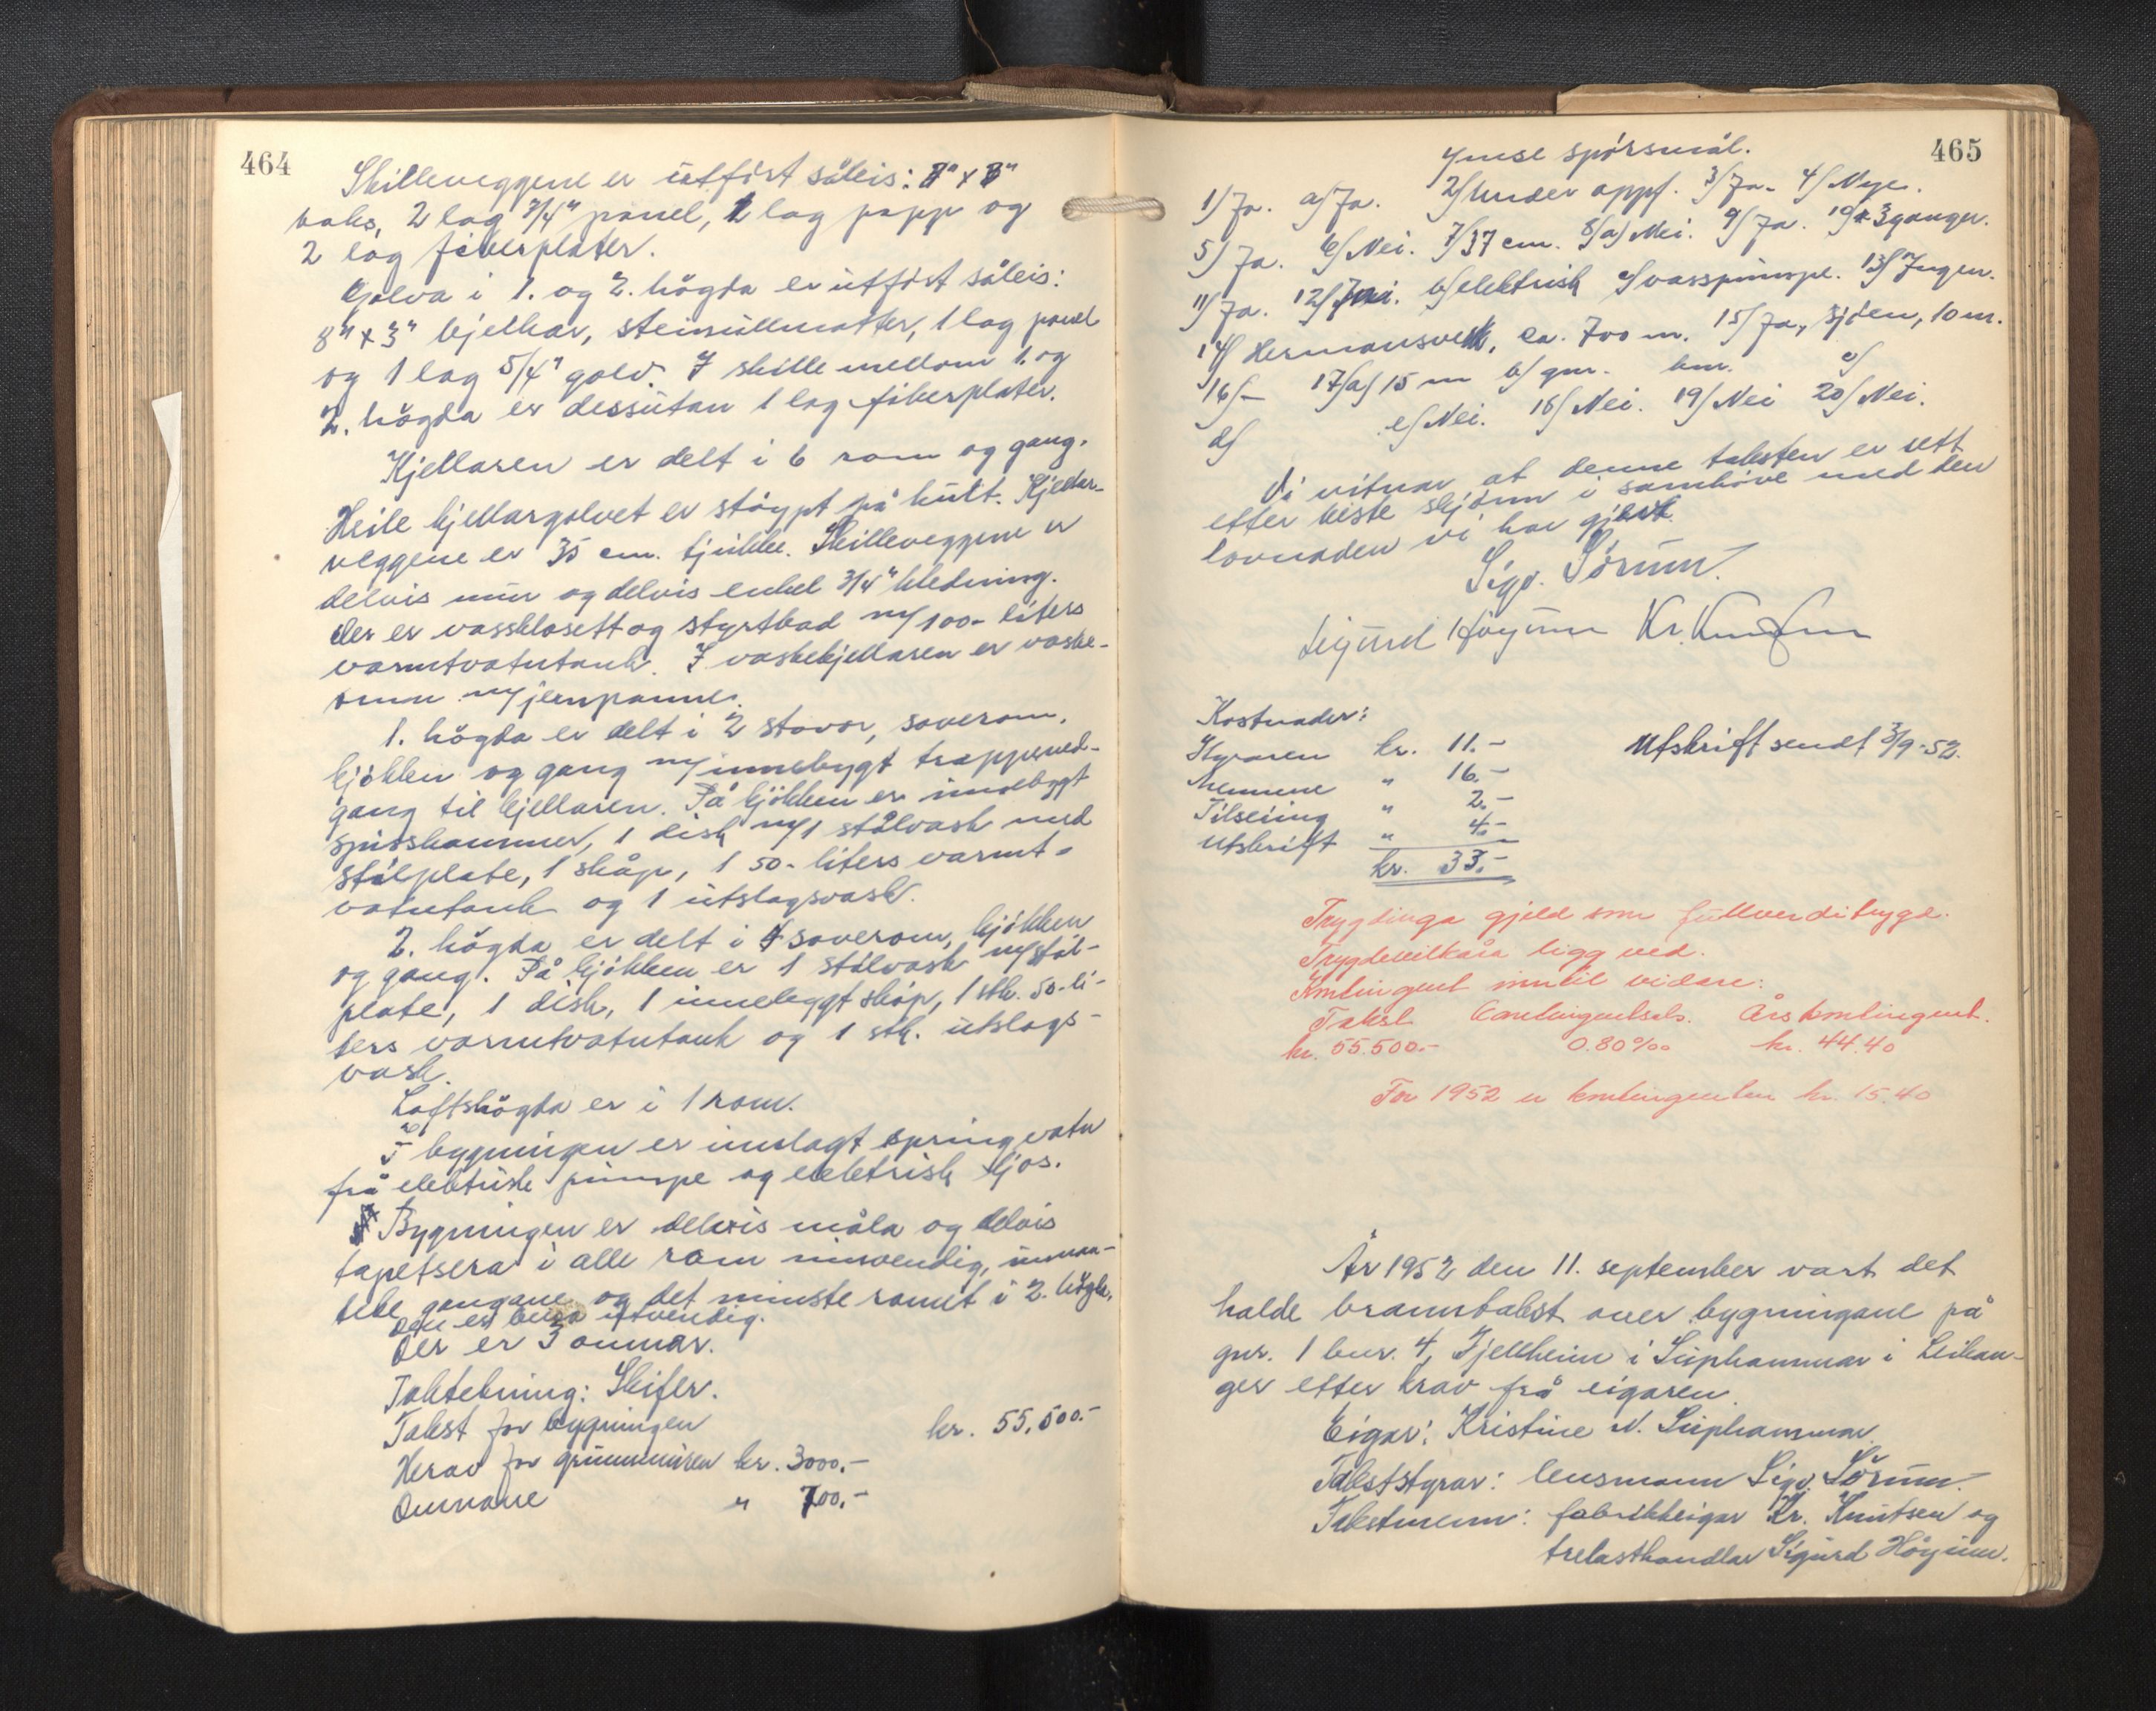 464
Skilleveggene er utført såleis:
boks, 2 lag 3/4" panel, 2 lag papp og
2 lag fiberplater.
Golva i 1. og 2. högda er utført såleis:
8" x 3" bjelkar, steinullmatter, 1 lag panel
og 1 lag 5/4" golv. I skille mellom 1. og
2. högda er dessutan 1 lag fiberplater.
Kjellaren er delt i 6 rom og gang.
Heile kjellargolvet er stöypt på kult. Kjellar-
veggene er 35 cm. tjukke. Skilleveggene er
delvis mur og delvis enkel 3/4" kledning.
Der er vassklosett og styrtbad m/100- liters
varmtvatntank. I vaskekjellaren er vaske-
omn m/jernpanne.
1. högda er delt i 2 stover, soverom,
kjökken og gang m/innebygt trappened-
gang til kjellaren. På kjökken er innebygt
spisskammer, 1 disk m/1 stålvask med
stålplate, 1 skåp, 1 50- liters varmt-
vatntank og 1 utslagsvask.
2. högda er delt i 4 soverom, kjökken
og gang. På kjökken er 1 stålvask m/stål-
plate, 1 disk, 1 innebyggt skåp, 1 stk. 50-li-
ters varmtvatntank og 1 stk. utslags-
vask.
Loftshögda er i 1 rom.
I bygningen er innlagt springvatn
frå elektrisk pumpe og elektrisk ljos.
Bygningen er delvis måla og delvis
tapetsera i alle rom innvendig, unnta-
ke gangane og det minste romet i 2. högda.
Den er utvendig.
Der er 3 omnar.
Taktekning: Skifer.
Takst for bygningen kr. 55.500.-
Herav for grunnmuren kr. 3000.-
Omnane " 700.-
465
Ymse spörsmål.
1/ Ja. a/ Ja. 2/ Under oppf. 3/ Ja. 4/ Mye.
5/ Ja. 6/ Nei. 7/ 37 cm. 8/a/ Nei. 9/ Ja. 10/ 3 ganger.
11/ Ja. 12/ b/ elektrisk c/ vasspumpe. 13/ Ingen.
14/ Hermansverk, ca. 700 m. 15/ Ja, sjöen, 10 m.
16/ - 17/a/ 15 m b/ gm. bm. c/
d/ e/ Nei. 18/ Nei. 19/ Nei 20/ Nei.
Vi vitnar at denne taksten er sett
etter beste skjönn i samhöve med den
lovnaden vi har gjevt.
Sigv. Sörum.
Sigurd Höyum Kr. Knutsen
Kostnader:
Styraren kr. 11.- Utskrift sendt 3/9-52.
Mennene " 16.-
Tilseiing " 2.-
Utskrift " 4.-
kr. 33.-
Trygdinga gjeld som fullverditrygd.
Trygdevilkåra ligg ved.
Kontingent inntil vidare:
Takst Contingentsats. Årskontingent.
kr. 55.500.- 0.80‰ kr. 44.40
For 1952 er kontingenten kr. 15.40
År 1952 den 11. september vart det
halde branntakst over bygningane på
gnr. 1 bnr. 4, Fjellheim i Suphammar i Leikan-
ger etter krav frå eigaren.
Eigar: Kristine N. Suphammar.
Takststyrar: lensmann Sigv. Sörum.
Takstmenn: fabrikkeigar Kr. Knutsen og
trelasthandlar Sigurd Höyum.